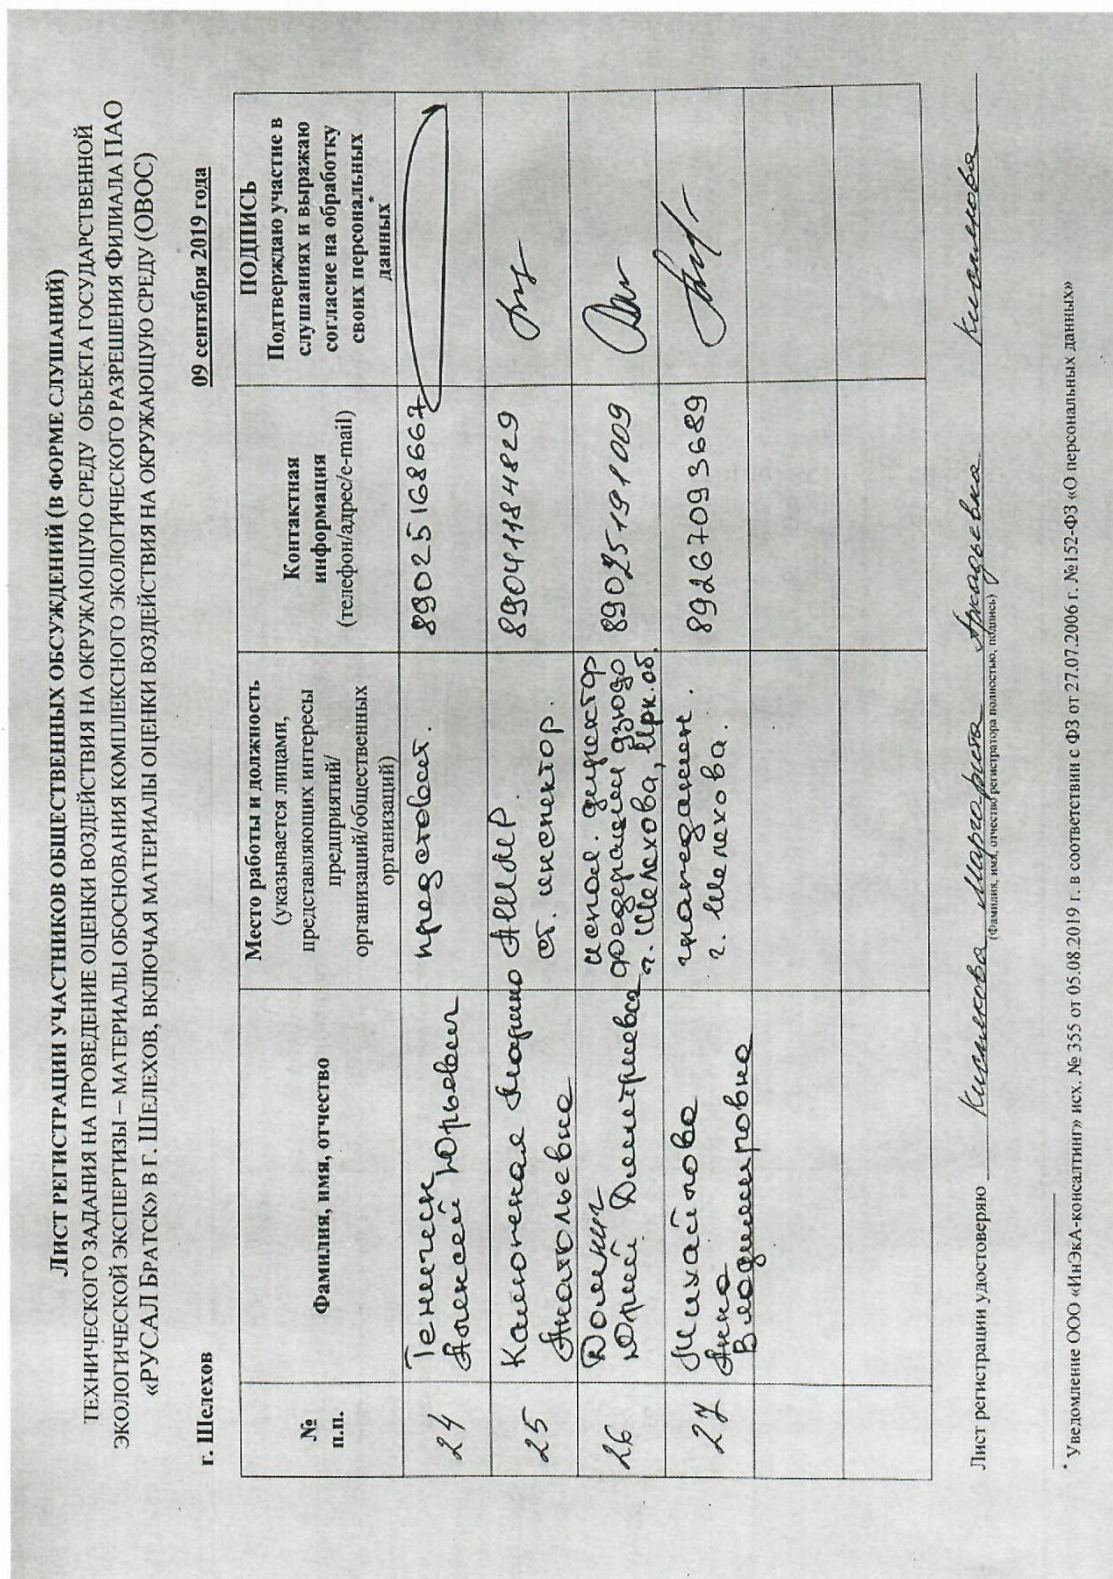 ЛИСТ РЕГИСТРАЦИИ УЧАСТНИКОВ ОБЩЕСТВЕННЫХ ОБСУЖДЕНИЙ (В ФОРМЕ СЛУШАНИЙ)
ТЕХНИЧЕСКОГО ЗАДАНИЯ НА ПРОВЕДЕНИЕ ОЦЕНКИ ВОЗДЕЙСТВИЯ НА ОКРУЖАЮЩУЮ СРЕДУ ОБЪЕКТА ГОСУДАРСТВЕННОЙ
ЭКОЛОГИЧЕСКОЙ ЭКСПЕРТИЗЫ – МАТЕРИАЛЫ ОБОСНОВАНИЯ КОМПЛЕКСНОГО ЭКОЛОГИЧЕСКОГО РАЗРЕШЕНИЯ ФИЛИАЛА ПАО
«РУСАЛ БРАТСК» В Г. ШЕЛЕХОВ, ВКЛЮЧАЯ МАТЕРИАЛЫ ОЦЕНКИ ВОЗДЕЙСТВИЯ НА ОКРУЖАЮЩУЮ СРЕДУ (ОВОС)
г. Шелехов
09 сентября 2019 года
№
п.п.
Фамилия, имя, отчество
Место работы и должность
(указывается лицами,
представляющих интересы
предприятий/
организаций/общественных
организаций)
Контактная
информация
(телефон/адрес/e-mail)
ПОДПИСЬ
Подтверждаю участие в
слушаниях и выражаю
согласие на обработку
своих персональных
данных*
24
Алексей Юрьевич
представит.
89025168667
25
Марина
Анатольевна
АШМР
ст. инспектор.
89041184829
26
Юрий Дмитриевич
испол. директор
федерации дзюдо
г. Шелехова, Ирк. об.
89025191009
27
Михайлова
Анна
Владимировна
гражданин.
г. Шелехова.
89267093689
Лист регистрации удостоверяю
Маргарита Аркадьевна
(Фамилия, имя, отчество регистратора полностью, подпись)
* Уведомление ООО «ИнЭкА-консалтинг» исх. № 355 от 05.08.2019 г. в соответствии с ФЗ от 27.07.2006 г. №152-ФЗ «О персональных данных»